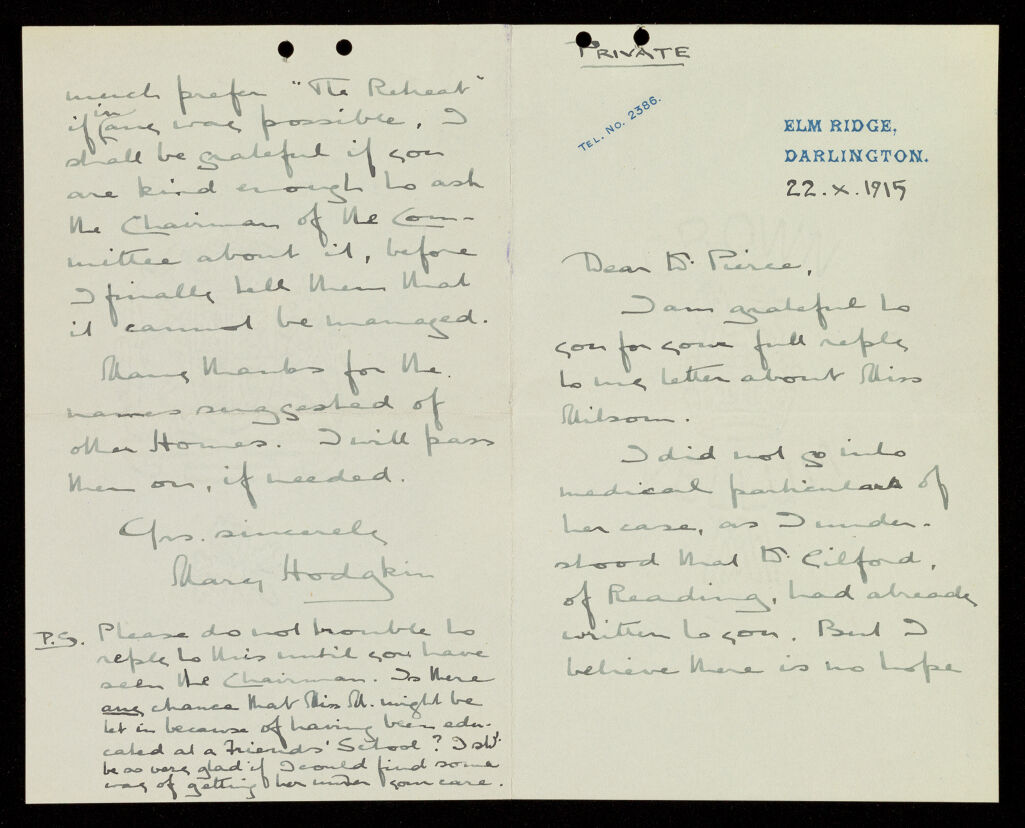 PRIVATE
TEL. No. 2386.
ELM RIDGE,
DARLINGTON.
22.X.1915
Dear Dr. Pierce,
I am grateful to
you for your full reply
to my letter about Miss
Milsom.
I did not go into
medical particulars of
her case, as I under-
stood that Dr. Gilford,
of Reading, had already
written to you. But I
believe there is no hope
much prefer "The Retreat"
if in any way possible, I
shall be grateful if you
are kind enough to ask
the Chairman of the Com-
mittee about it, before
I finally tell them that
it cannot be managed.
Many thanks for the
names suggested of
other Homes. I will pass
them on, if needed.
Yrs. sincerely
Mary Hodgkin
P.S. Please do not trouble to
reply to this until you have
seen the Chairman. Is there
any chance that Miss M. might be
let in because of having been edu-
cated at a Friends' School? I shd.
be so very glad if I could find some
way of getting her under your care.